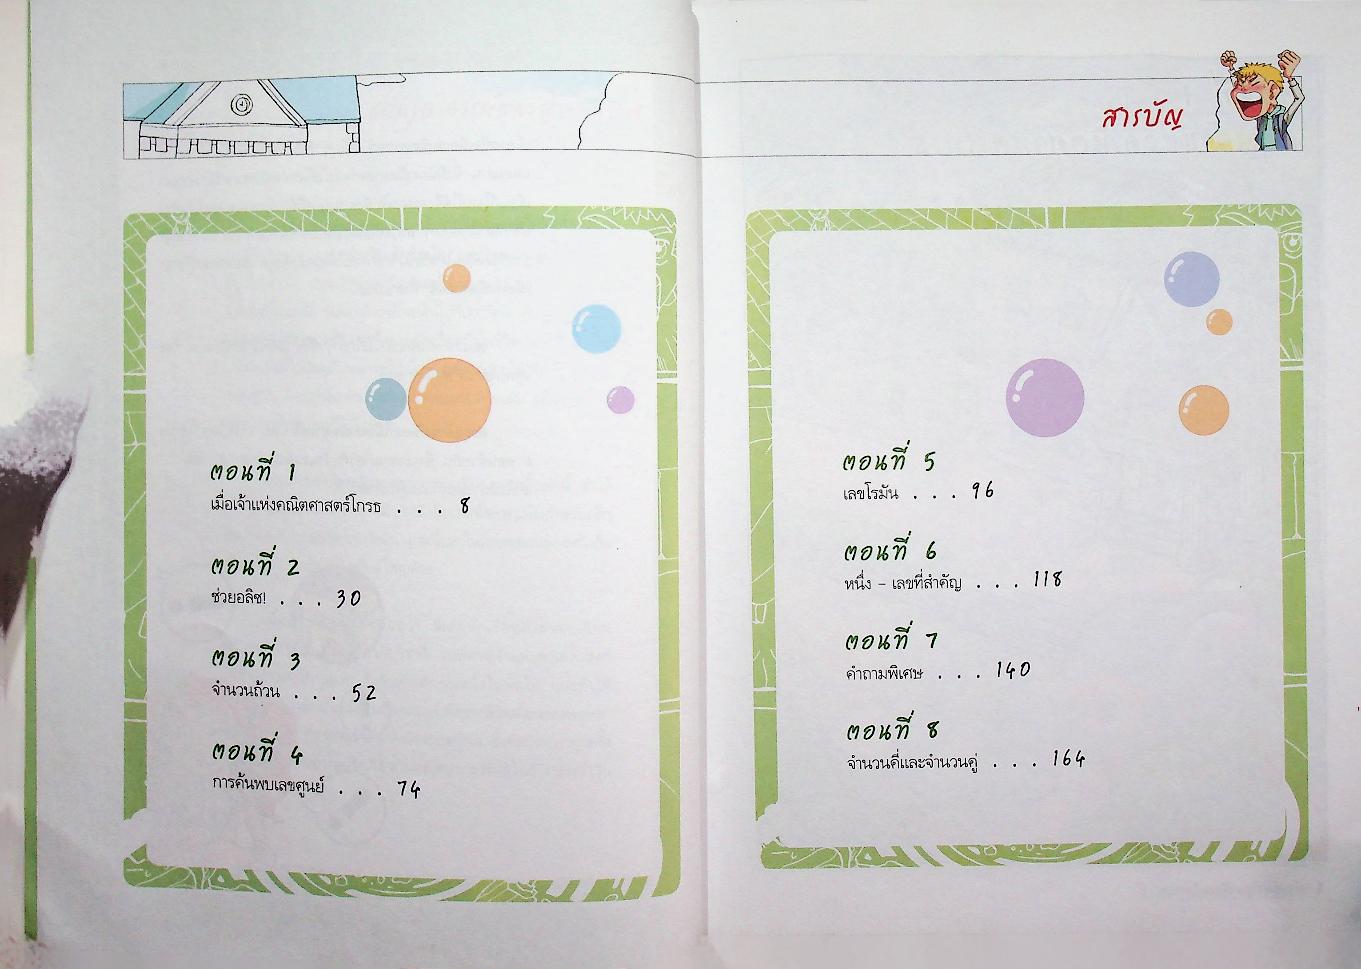 สารบัญ
ตอนที่ 1
เมื่อเจ้าแห่งคณิตศาสตร์โกรธ . . . 8
ตอนที่ 2
ช่วยอลิซ! . . . 30
ตอนที่ 3
จำนวนถ้วน . . . 52
ตอนที่ 4
การค้นพบเลขศูนย์ . . . 74
ตอนที่ 5
เลขโรมัน . . . 96
ตอนที่ 6
หนึ่ง - เลขที่สำคัญ . . . 118
ตอนที่ 7
คำถามพิเศษ . . . 140
ตอนที่ 8
จำนวนคี่และจำนวนคู่ . . . 164